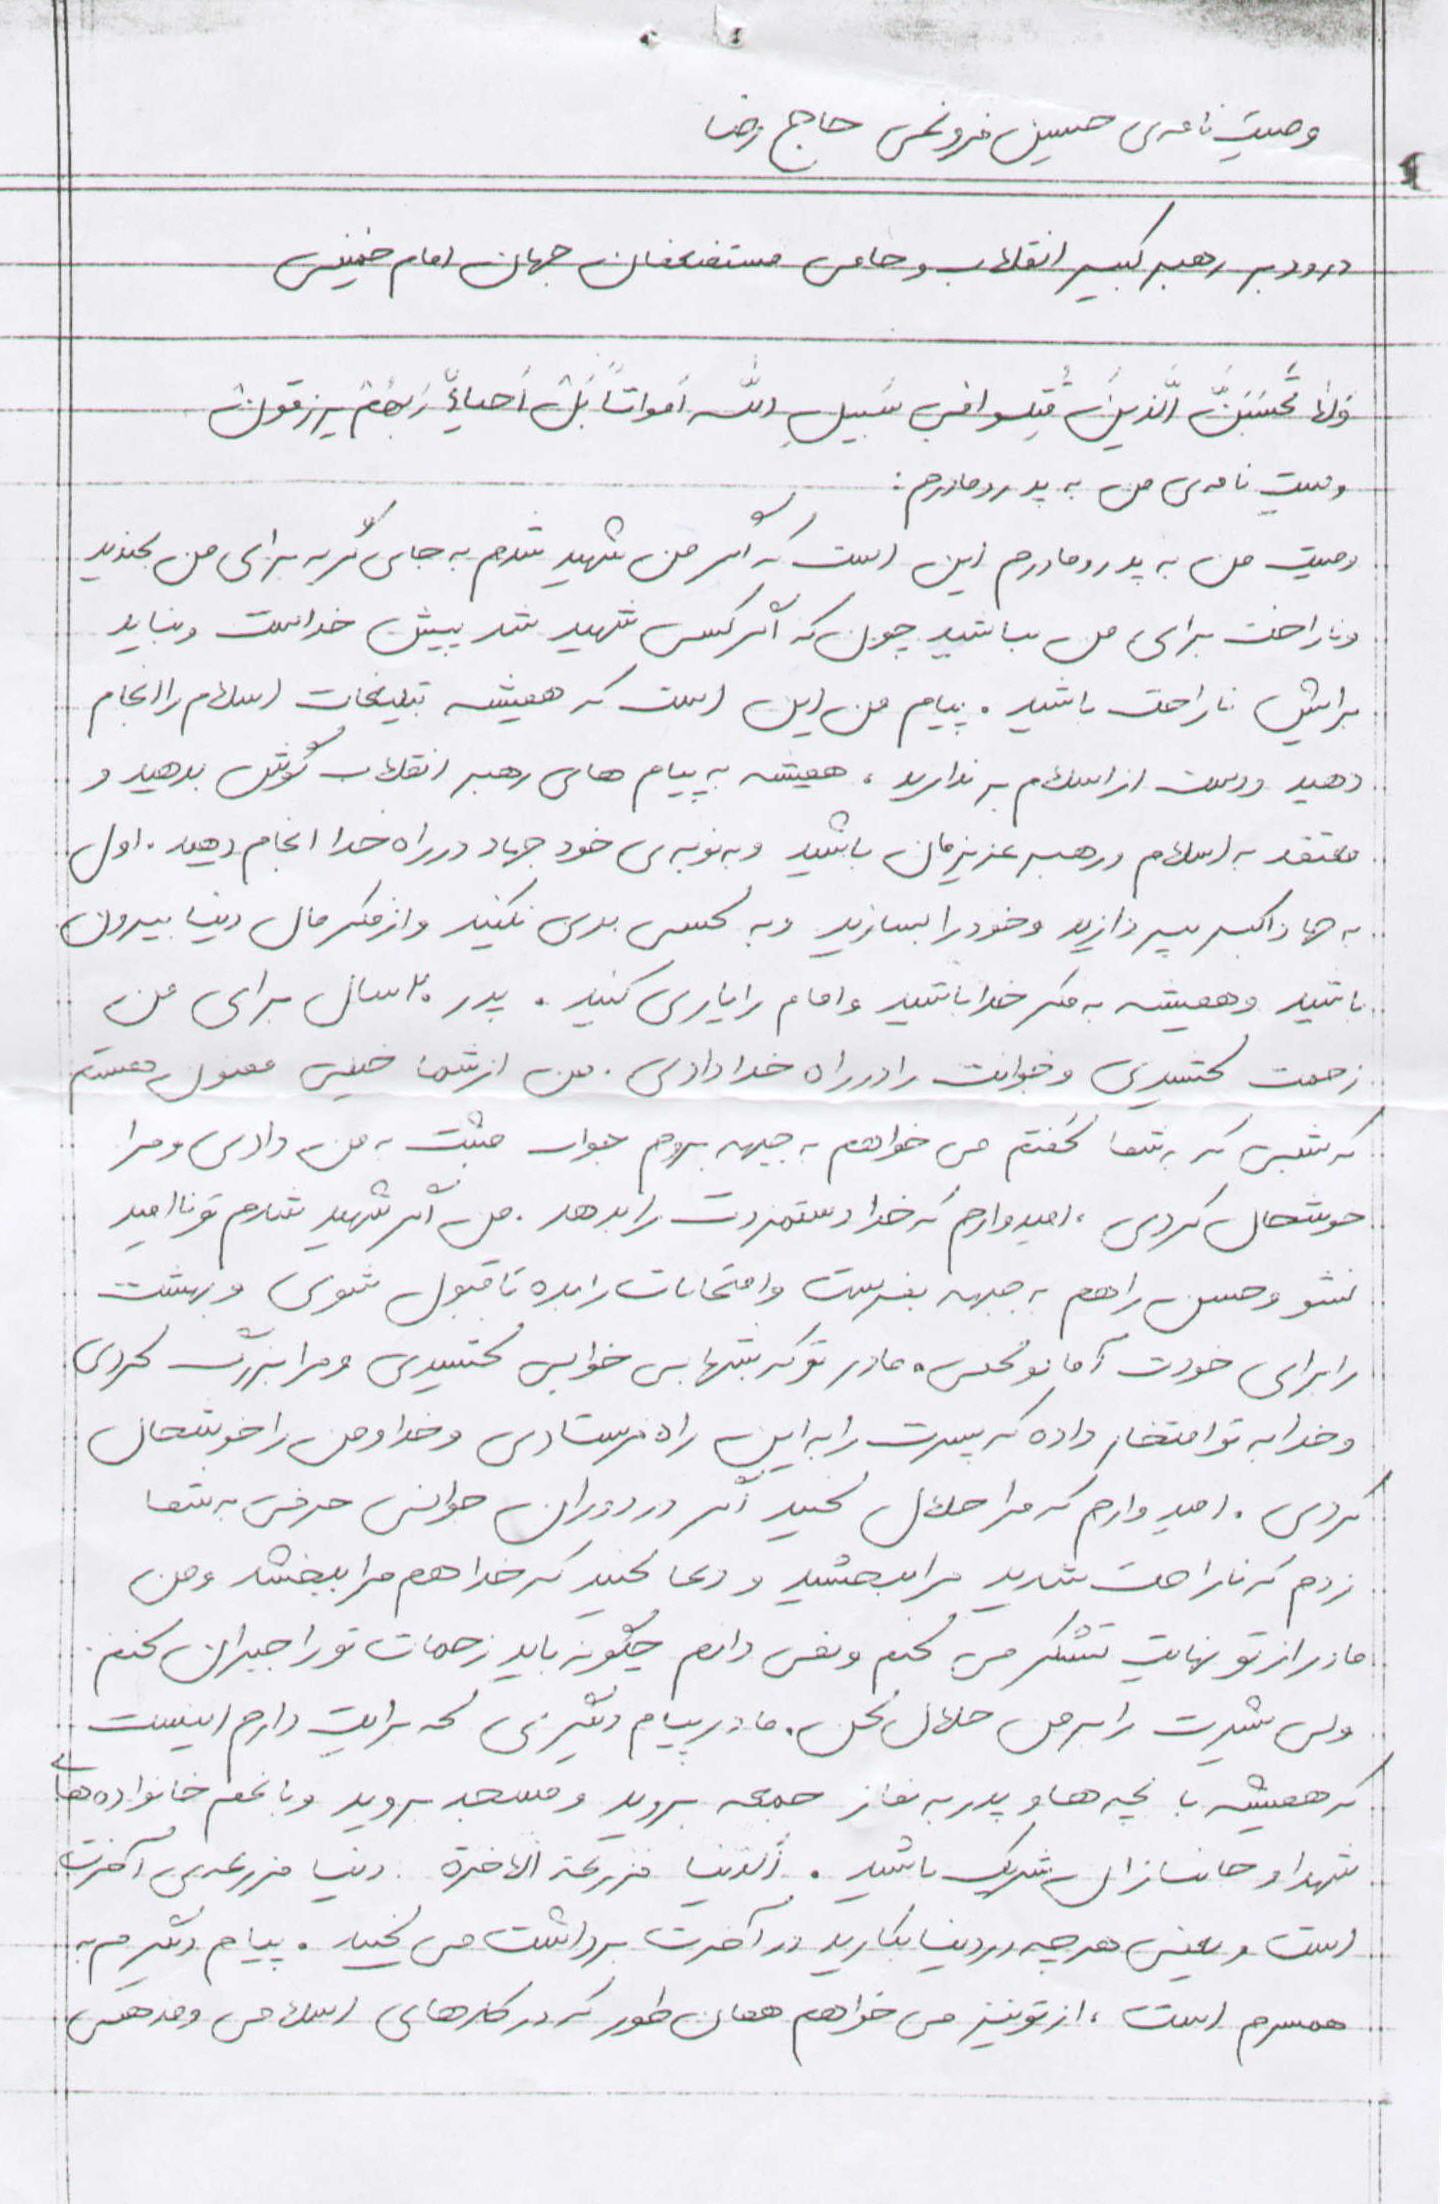 وصیت نامه‌ی حسین فرونمی حاج رضا
درود بر رهبر کبیر انقلاب و حامی مستضعفان جهان امام خمینی
وَلا تَحْسَبَنَّ الَّذینَ قُتِلوا فی سَبیلِ اللّه اَمواتاً بَلْ اَحیاءٌ رَبِهِمْ یرزقون
وصیت نامه‌ی من به پدر و مادرم :
وصیت من به پدر و مادرم این است که اگر من شهید شدم به جای گریه برای من بخندید
و ناراحت برای من نباشید چون که اگر کسی شهید شد پیش خداست و نباید
برایش ناراحت باشید . پیام من این است که همیشه تبلیغات اسلام را انجام
دهید و دست از اسلام بر ندارید ، همیشه به پیام های رهبر انقلاب گوش بدهید و
معتقد به اسلام و رهبر عزیزمان باشید و به نوبه‌ی خود جهاد در راه خدا انجام دهید . اول
به جهاد اکبر بپردازید و خود را بسازید و به کسی بدی نکنید و از فکر مال دنیا بیرون
باشید و همیشه به فکر خدا باشید و امام را یاری کنید . پدر ۲۰ سال برای من
زحمت کشیدی و جوانت را در راه خدا دادی . من از شما خیلی ممنون هستم
که شبی که به شما گفتم می خواهم به جبهه بروم جواب مثبت به من دادی و مرا
خوشحال کردی ، امیدوارم که خدا دستمزدت را بدهد . من اگر شهید شدم تو ناامید
نشو و حسن را هم به جبهه بفرست و امتحانات را بده تا قبول شوی و بهشت
را برای خودت آماده کنی . مادر تو که شبها بی خوابی کشیدی و مرا بزرگ کردی
و خدا به تو افتخار داده که پسرت را به این راه فرستادی و خدا و من را خوشحال
کردی . امیدوارم که مرا حلال کنید اگر در دوران جوانی حرفی به شما
زدم که ناراحت شدید مرا ببخشید و دعا کنید که خدا هم مرا ببخشد و من
مادر از تو نهایت تشکر می کنم و نمی دانم چگونه باید زحمات تو را جبران کنم .
ولی شیرت را بر من حلال کن . مادر پیام دیگری که برایت دارم اینست
که همیشه با بچه ها و پدر به نماز جمعه بروید و مسجد بروید و با غم خانواده های
شهدا و جانبازان شریک باشید . اَلدنیا مزرعة الاخرة . دنیا مزرعه‌ی آخرت
است و یعنی هر چه در دنیا بکارید در آخرت برداشت می کنید . پیام دیگرم به
همسرم است ، از تو نیز می خواهم همان طور که در کارهای اسلامی و مذهبی